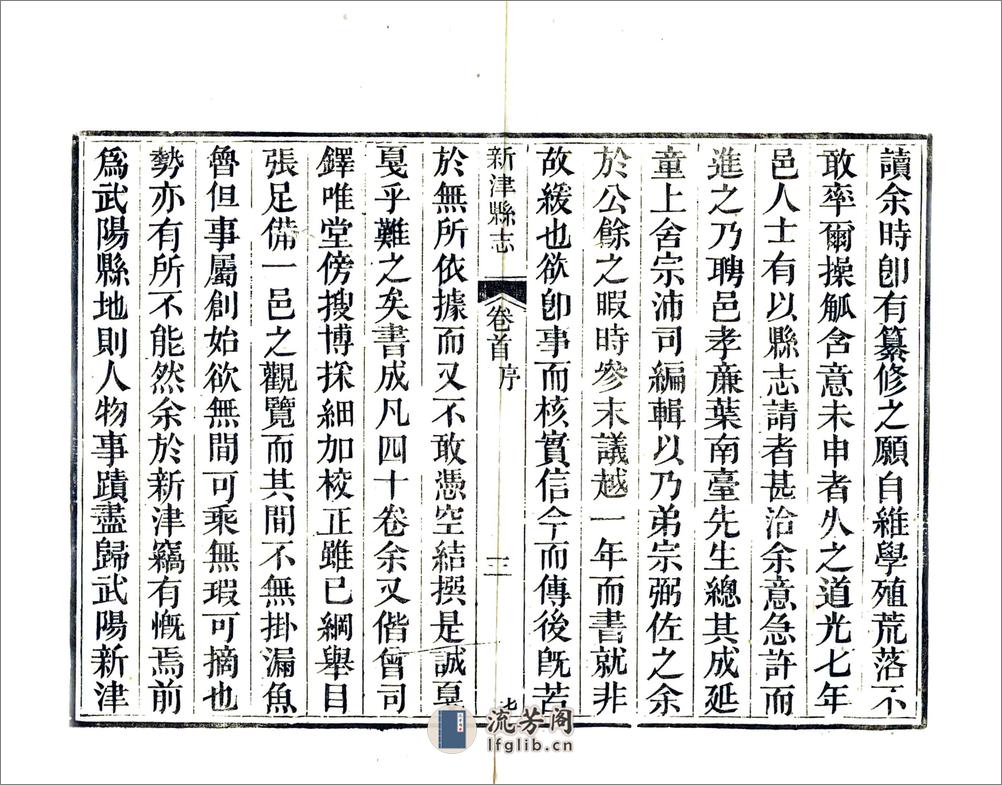 讀余時卽有纂修之願自維學殖荒落不
敢率爾操觚含意未申者久之道光七年
邑人士有以縣志請者甚洽余意急許而
進之乃聘邑孝亷葉南臺先生總其成延
童上舍宗沛司編輯以乃弟宗弼佐之余
於公餘之暇時參末議越一年而書就非
故緩也欲卽事而核實信今而傳後旣苦
新津縣志 卷首 序 三 七
於無所依據而又不敢憑空結撰是誠戛
戛乎難之矣書成凡四十卷余又偕曾司
鐸唯堂傍搜博採細加校正雖已綱舉目
張足備一邑之觀覽而其間不無掛漏魚
魯但事屬創始欲無間可乘無瑕可摘也
勢亦有所不能然余於新津竊有慨焉前
爲武陽縣地則人物事蹟盡歸武陽新津
流芳阁
lfglib.cn